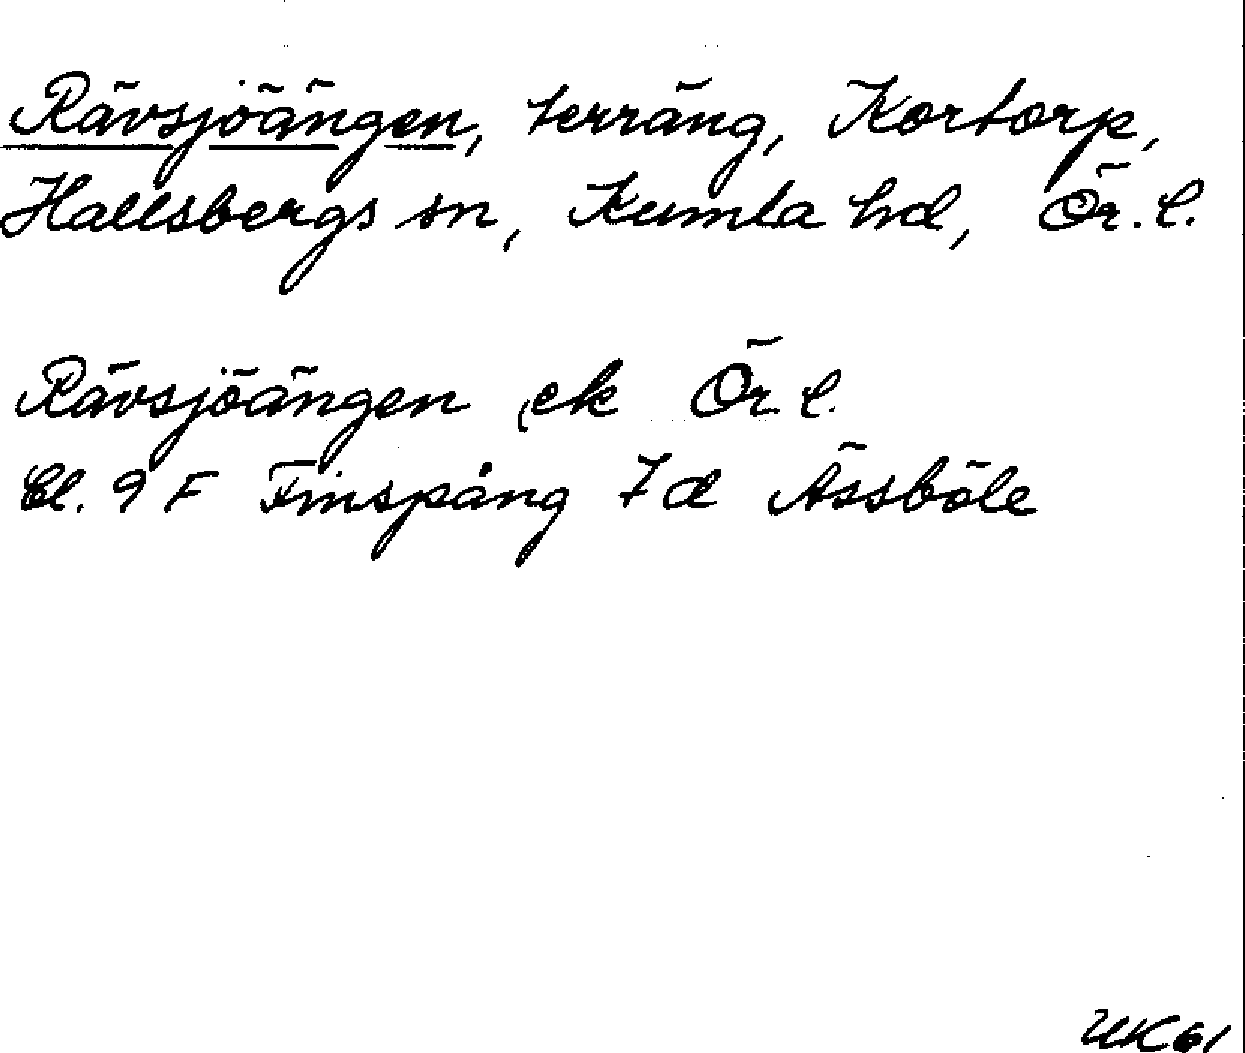 Rävsjöängen, terräng, Kortorp,
Hallsbergs sn, Kumla hd, Ör. l.
Rävsjöängen ek Ör. l.
Bl. 9 F Finspång 7 d Åssböle
UK 61